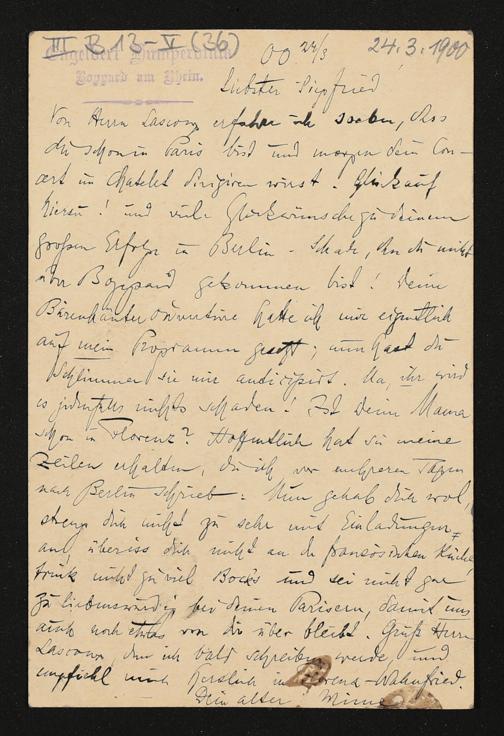 III B 13-V (36)
Engelbert Humperdinck
Boppard am Rhein.
00 24/3
24.3.1900
Liebster Siegfried!
Von Herrn Lascoux erfahre ich soeben, dass
du schon in Paris bist und morgen dein Con-
cert im Chatelet dirigiren wirst. Glückauf
hierzu! und viele Glückwünsche zu deinem
großen Erfolge in Berlin - Schade, dass du nicht
über Boppard gekommen bist! Deine
Bärenhäuterouverture hatte ich mir eigentlich
auf mein Programm gesetzt; nun hast du
Schlimmer sie mir anticipirt. Na, ihr wird
es jedenfalls nichts schaden! Ist deine Mama
schon in Florenz? Hoffentlich hat sie meine
Zeilen erhalten, die ich vor mehreren Tagen
nach Berlin schrieb. Nun gehab dich wol,
streng dich nicht zu sehr mit Einladungen
an, überiss dich nicht an der französischen Küche,
trink nicht zu viel Bocks und sei nicht gar
zu liebenswürdig bei deinen Parisern, damit uns
auch noch etwas von dir über bleibt. Grüß Herrn
Lascoux, dem ich bald schreiben werde, und
empfiehl mich herzlich in Wahnfried.
Dein alter Mime